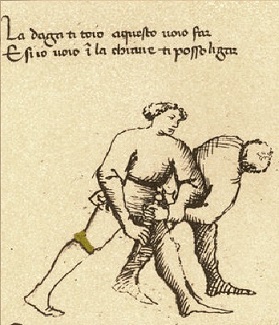 La daga ti toio aquesto voio far
E si io voio i la chiave ti posso ligar